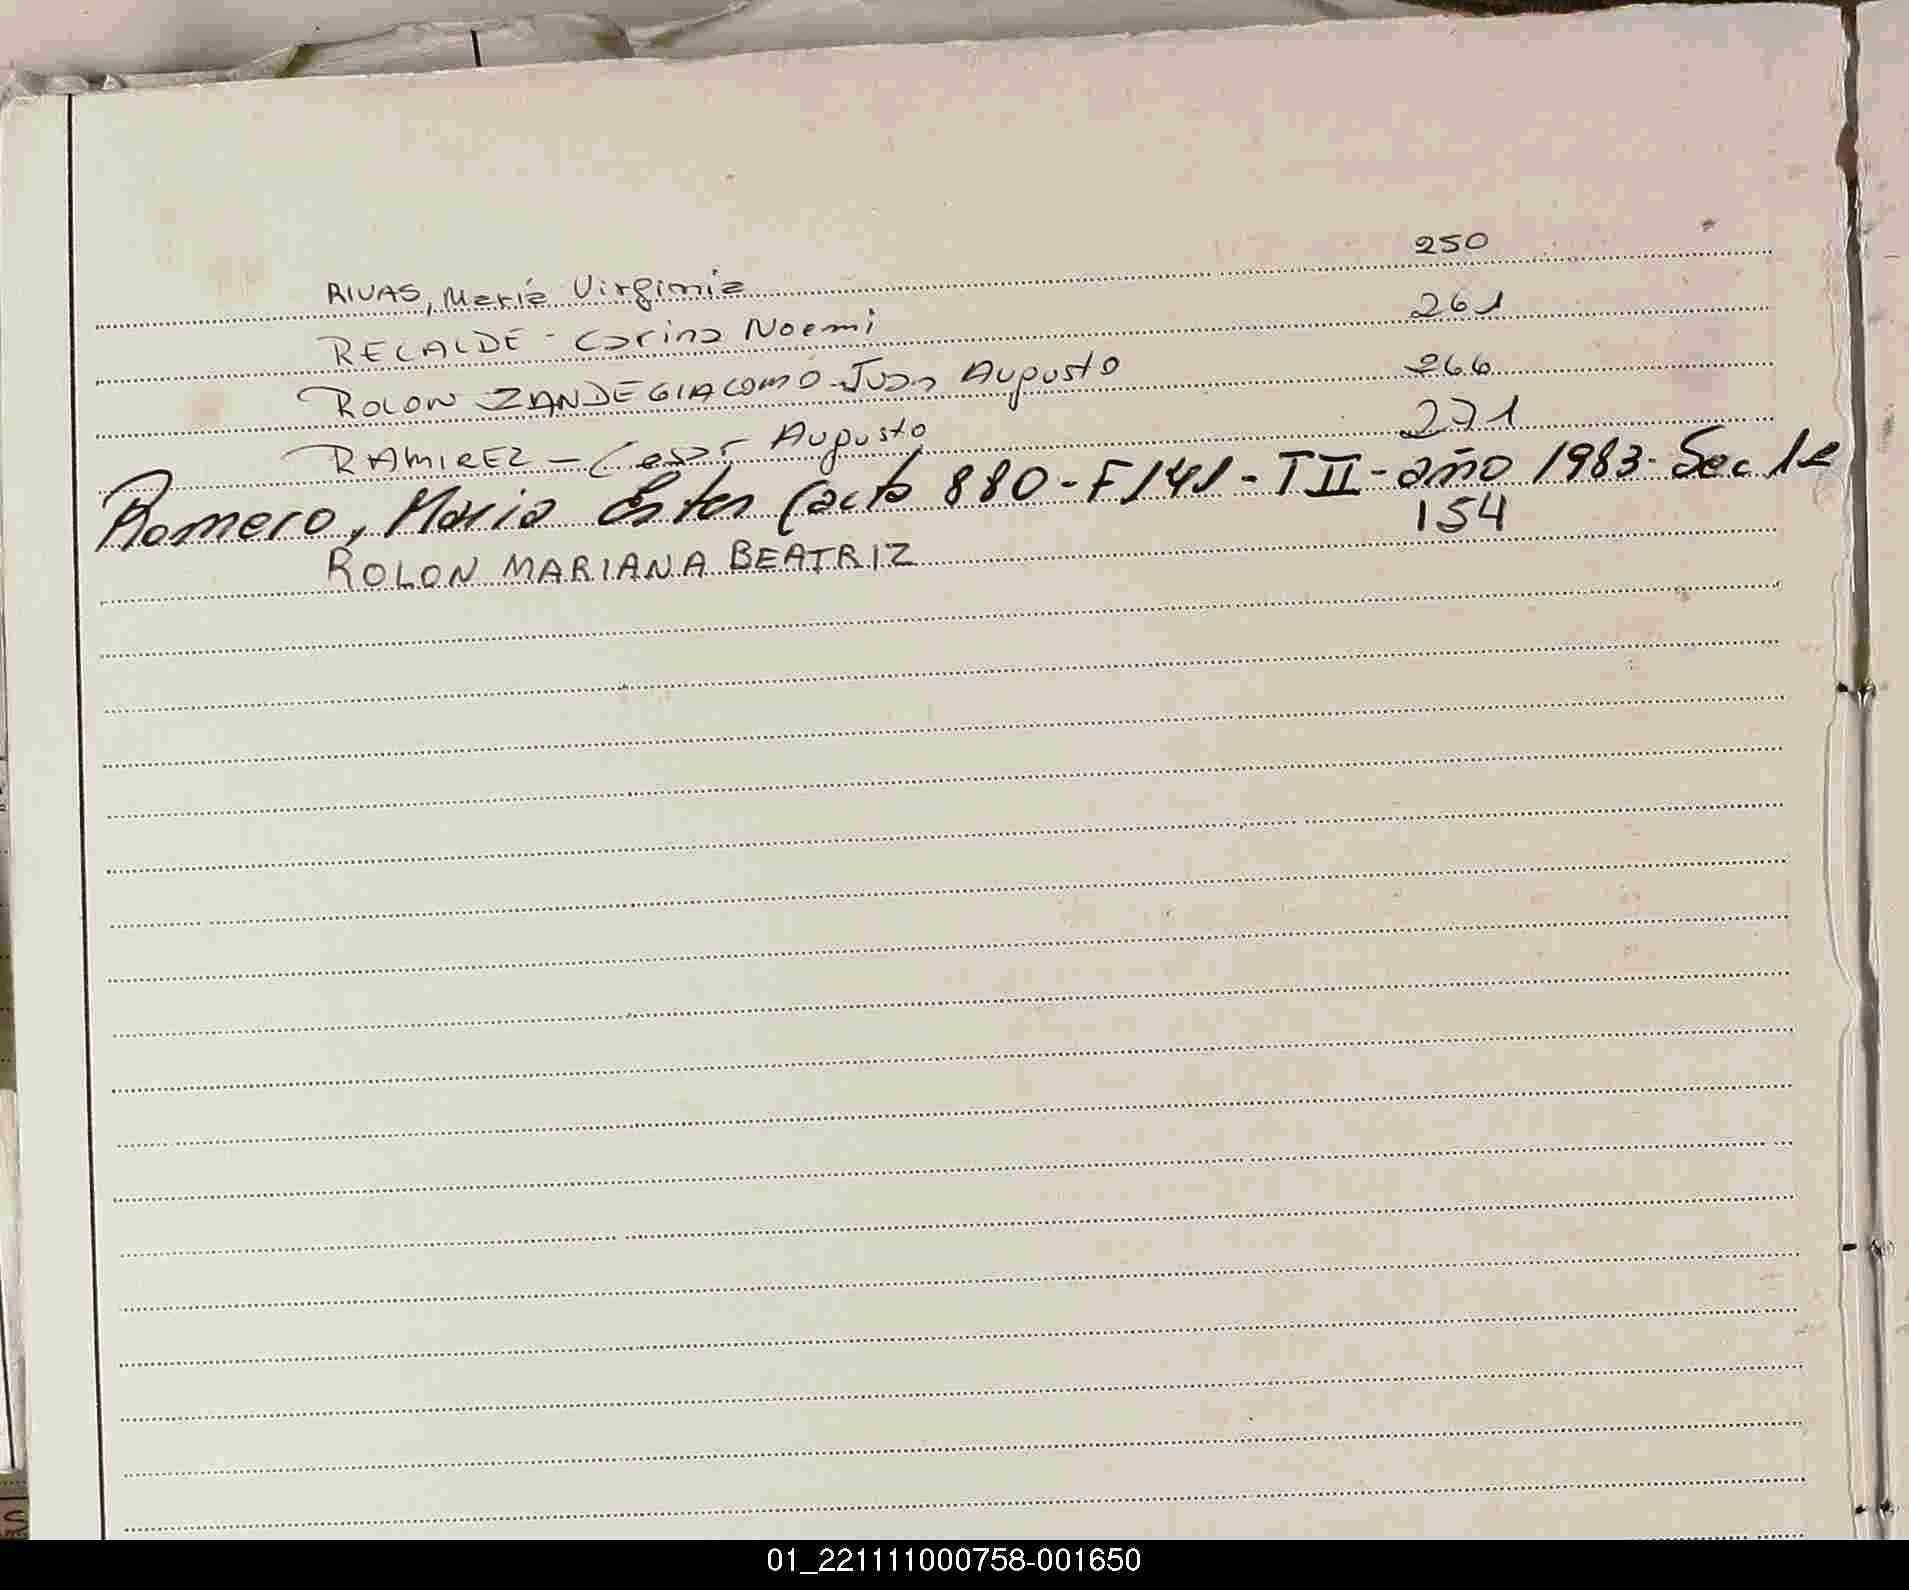 RIVAS, María Virginia 250
RECALDE - Carina Noemi 261
ROLON ZANDEGIACOMO - Juan Augusto 266
RAMIREZ - Cesar Augusto 271
Romero, Maria Ester (acta 880 - F 141 - T II - año 1983 - Sec 1a
ROLON MARIANA BEATRIZ 154
01_221111000758-001650